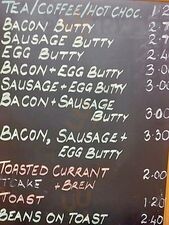 TEA/COFFEE/HOT CHOC. 1·2
BACON BUTTY 2·7
SAUSAGE BUTTY 2·7
EGG BUTTY 2·4
BACON + EGG BUTTY 3·0
SAUSAGE + EGG BUTTY 3·00
BACON + SAUSAGE
BUTTY 3·00
BACON, SAUSAGE +
EGG BUTTY 3·30
TOASTED CURRANT
TCAKE + BREW 2·00
TOAST 1·20
BEANS ON TOAST 2·40